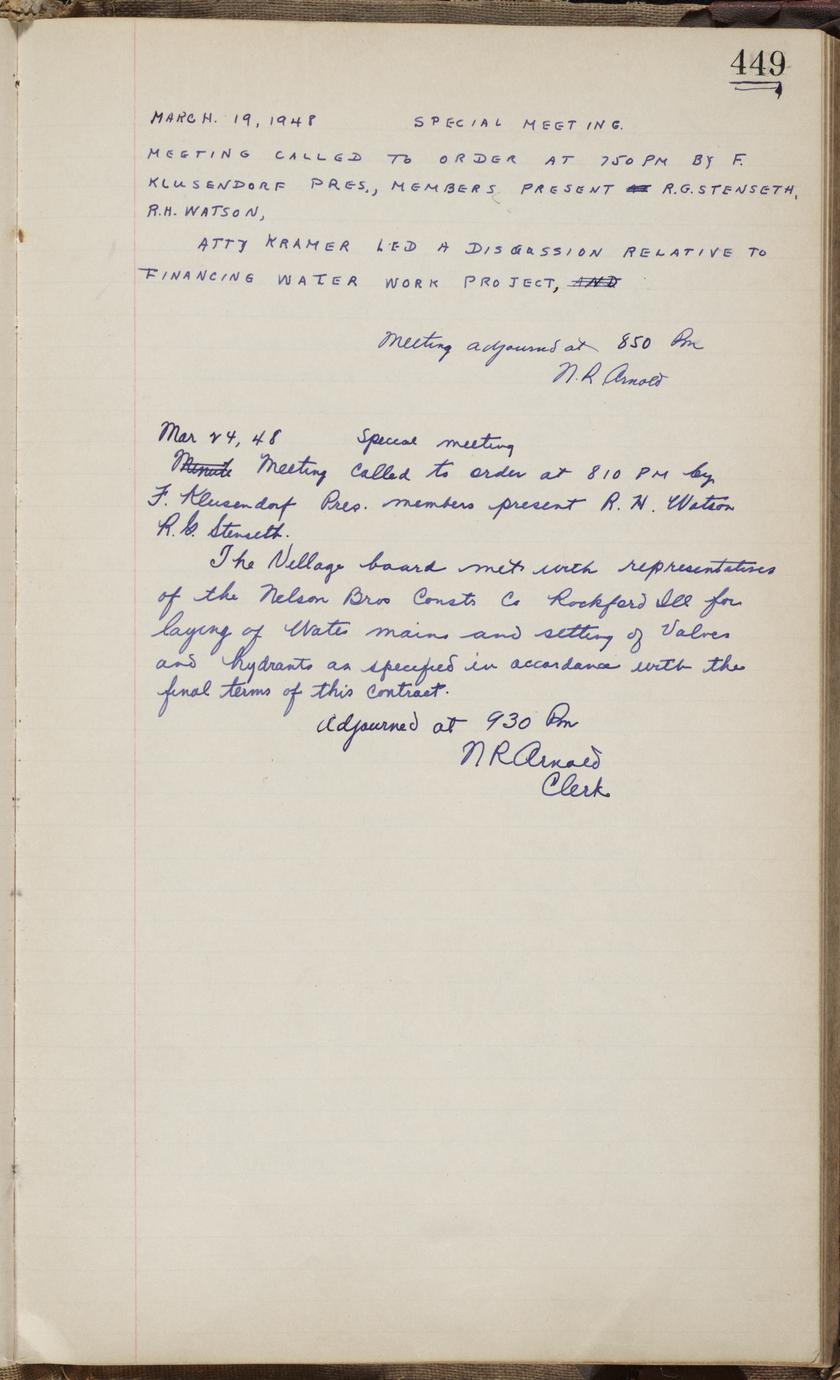 449
MARCH. 19, 1948 SPECIAL MEETING.
MEETING CALLED TO ORDER AT 750 PM BY F.
KLUSENDORF PRES., MEMBERS PRESENT R.G. STENSETH,
R.H. WATSON,
ATTY KRAMER LED A DISCUSSION RELATIVE TO
FINANCING WATER WORK PROJECT, AND
Meeting adjourned at 850 Pm
N.R Arnold
Mar 24, 48 Special meeting
Minute Meeting called to order at 810 PM by
F. Klusendorf Pres. members present R. H. Watson
R.G. Stenseth.
The Village board met with representatives
of the Nelson Bros Constr Co Rockford Ill for
laying of Water mains and setting of Valves
and hydrants as specified in accordance with the
final terms of this contract.
Adjourned at 930 Pm
N R Arnold
Clerk